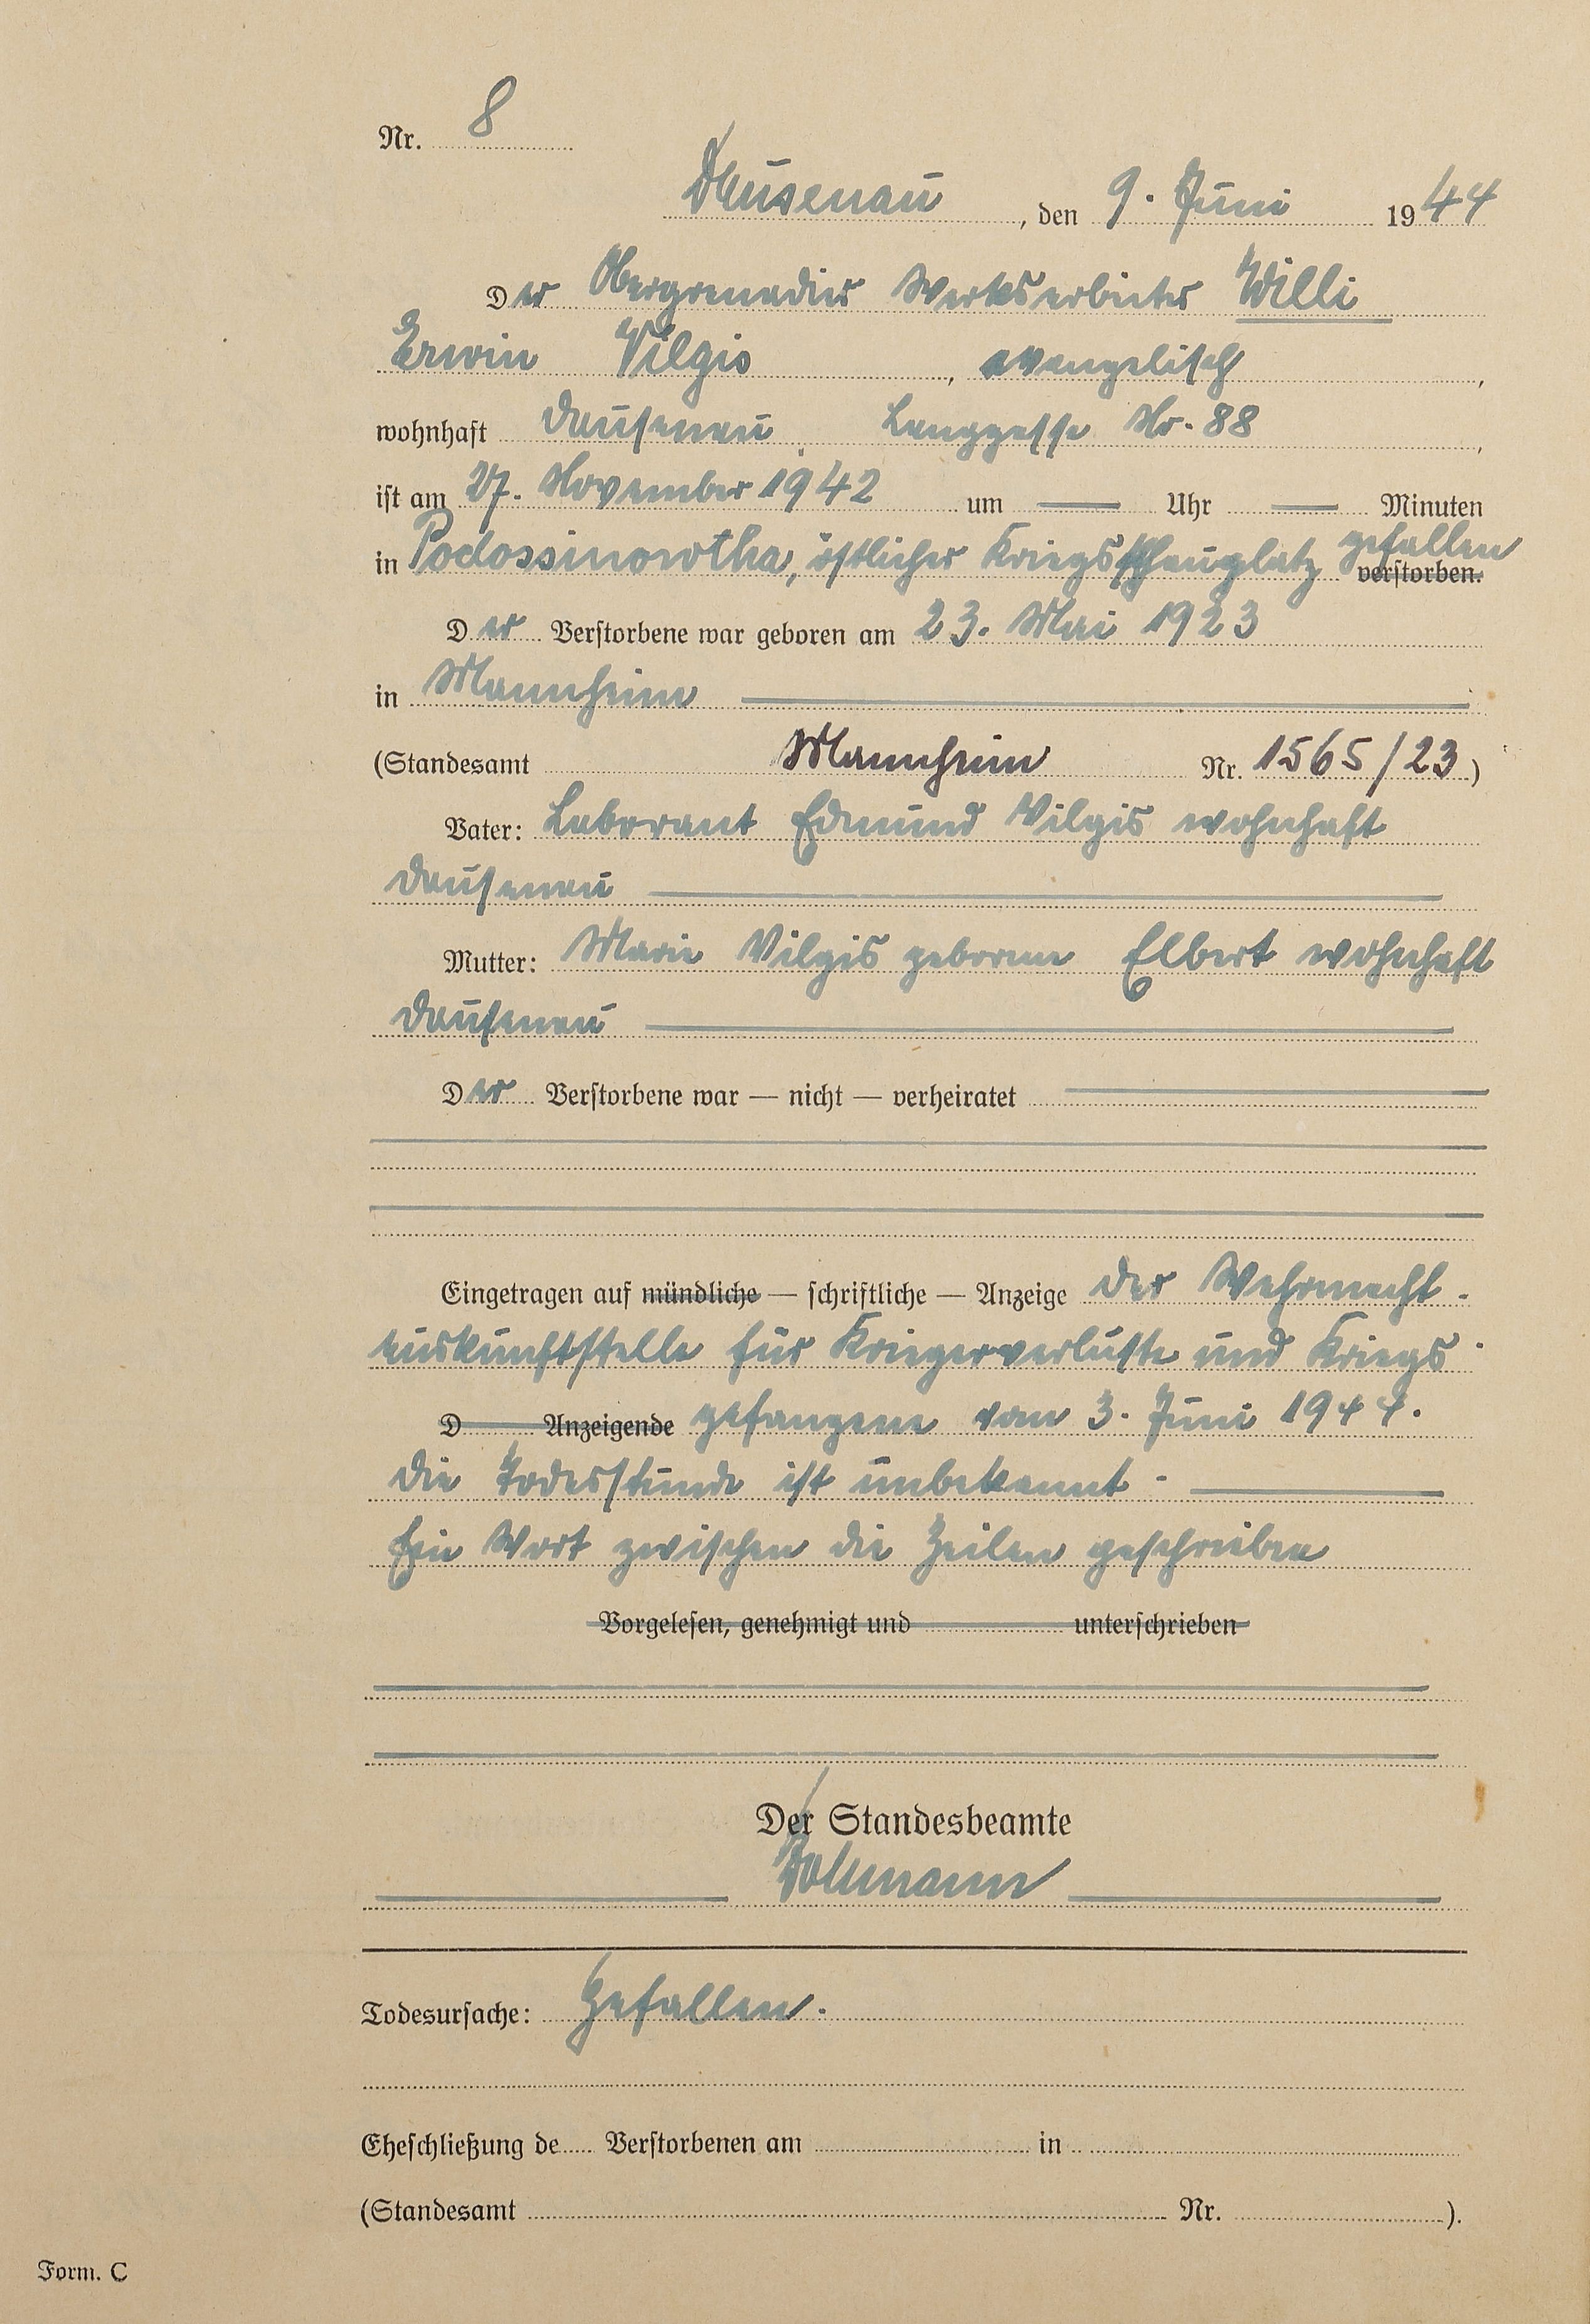 Nr. 8
Dausenau, den 9. Juni 1944
Der Obergrenadier Werksarbeiter Willi
Erwin Vilgis, evangelisch,
wohnhaft Dausenau, Langgasse Nr. 88,
ist am 27. November 1942 um — Uhr — Minuten
in Podossinowtha, östlicher Kriegsschauplatz gefallen verstorben.
Der Verstorbene war geboren am 23. Mai 1923
in Mannheim
(Standesamt Mannheim Nr. 1565/23)
Vater: Laborant Edmund Vilgis wohnhaft
Dausenau
Mutter: Marie Vilgis geborene Elbert wohnhaft
Dausenau
Der Verstorbene war — nicht — verheiratet
Eingetragen auf mündliche — schriftliche — Anzeige der Wehrmacht-
auskunftstelle für Kriegerverluste und Kriegs-
D Anzeigende gefangene vom 3. Juni 1944.
Die Todesstunde ist unbekannt -
Ein Wort zwischen die Zeilen geschrieben
Vorgelesen, genehmigt und unterschrieben
Der Standesbeamte
Todesursache: Gefallen.
Eheschließung de Verstorbenen am in
(Standesamt Nr. ).
Form. C